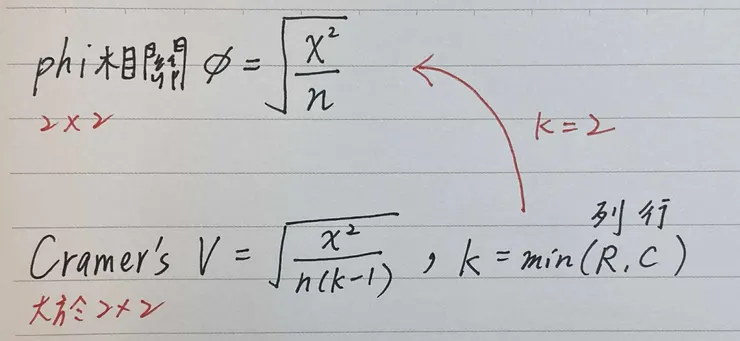 phi相關 φ = √(χ²/n)
2×2
k=2
列 行
Cramer's V = √(χ²/n(k-1)) , k = min(R, C)
大於 2×2